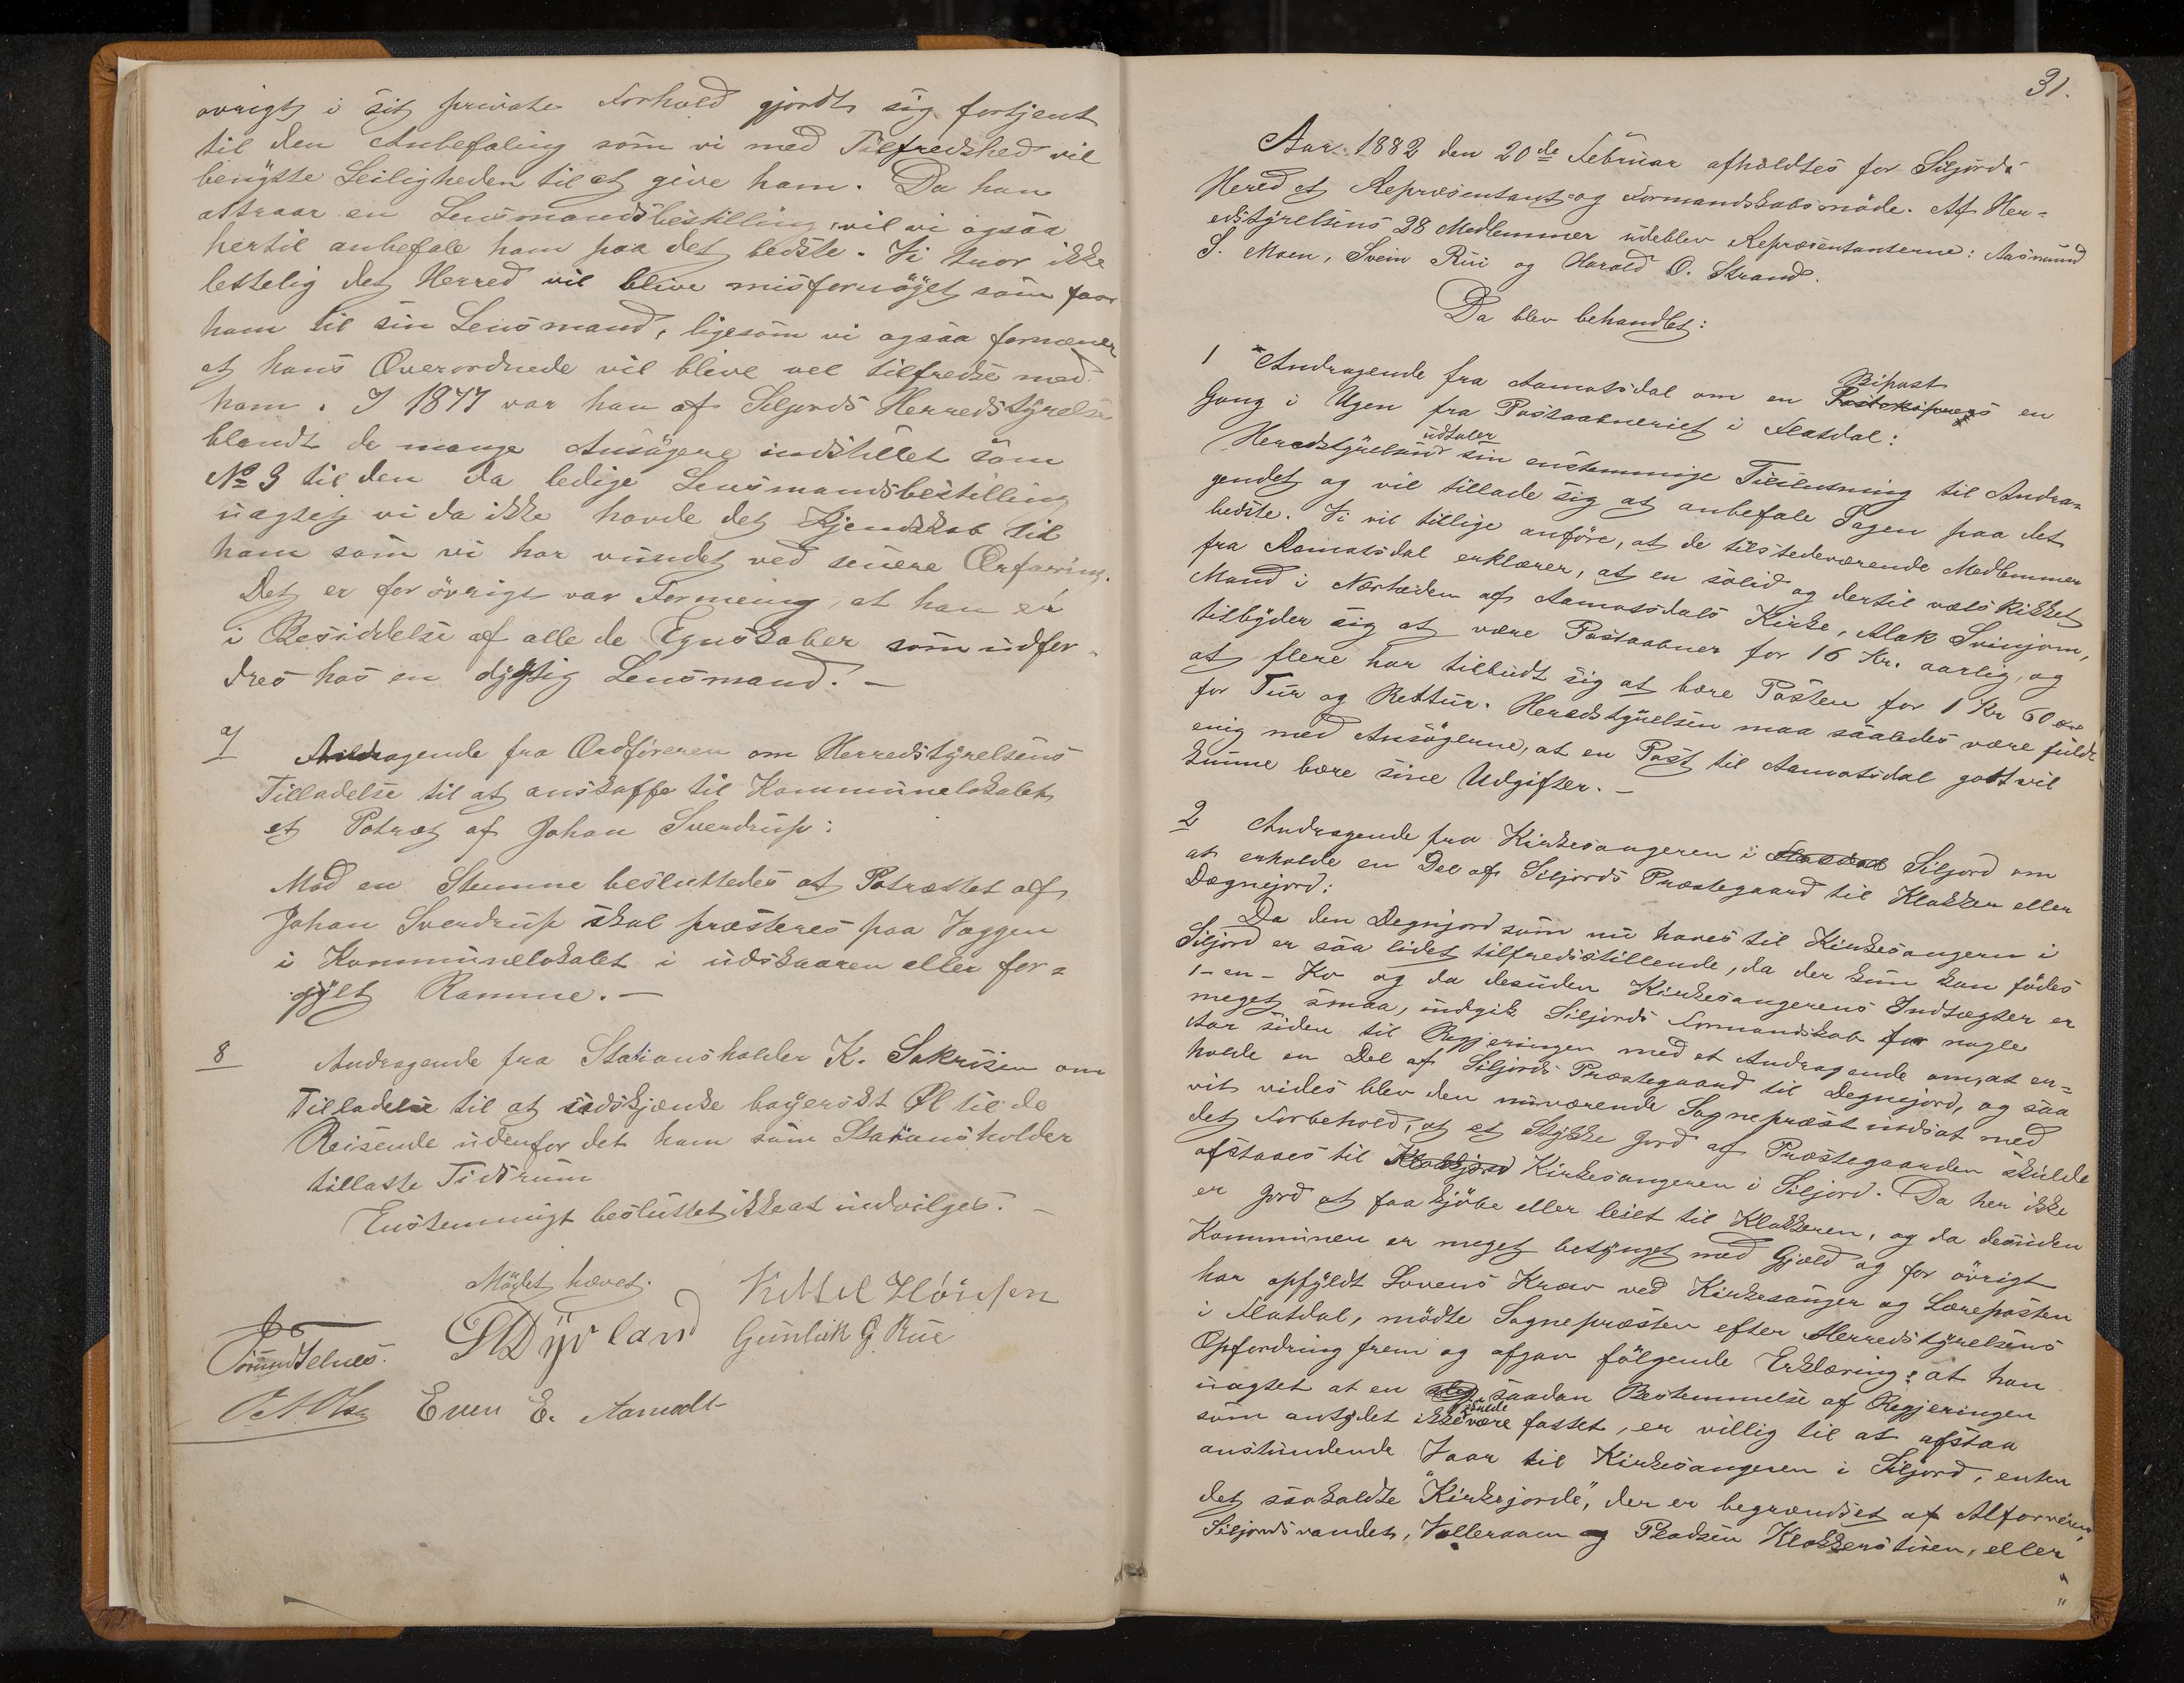 øvrigt i sit private Forhold gjordt sig fortjent
til den Anbefaling som vi med Tilfredshed vil
benytte Leiligheden til at give ham. Da han
attraar en Lensmandsbestilling, vil vi ogsaa
hertil anbefale ham paa det bedste. Vi tror ikke
lettelig det Herred vil blive misfornøiet som faar
ham til sin Lensmand, ligesom vi ogsaa formener
at hans Overordnede vil blive vel tilfredse med
ham. I 1877 var han af Siljords Herredstyrelse
blandt de mange Ansøgere indstillet som
No 3 til den da ledige Lensmandsbestilling
uagtet vi da ikke havde det Kjendskab til
ham som vi har vundet ved senere Erfaring.
Det er forøvrigt vor Formening, at han er
i Besiddelse af alle de Egenskaber som udfor-
dres hos en dygtig Lensmand. —
7 Andragende fra Ordføreren om Herredstyrelsens
Tilladelse til at anskaffe til Kommunelokalet
et Potræt af Johan Sverdrup:
Mod en Stemme besluttedes at Potrættet af
Johan Sverdrup skal præsteres paa Væggen
i Kommunelokalet i udskaaren eller for-
gylt Ramme. —
8 Andragende fra Stationsholder K. Sakrisen om
Tilladelse til at udskjænke bayerskt Øl til de
Reisende udenfor det ham som Stationsholder
tillatte Tidsrum
Enstemmigt besluttet ikke at indvilges. —
Mødet hævet.
Kittel
Dyrland Gunleik G. Rue
Even E. Aamodt
31.
Aar 1882 den 20de Februar afholdtes for Siljords
Hered et Repræsentant- og Formandskabsmøde. Af Her-
edstyrelsens 28 Medlemmer udeblev Repræsentanterne: Aasmund
S. Moen, Svein Rui og Harald O. Strand.
Da blev behandlet:
1 Andragende fra Aamotsdal om en Bipost en
Gang i Ugen fra Postaabneriet i Flatdal:
Heredstyrelsen udtaler sin enstemmige Tilslutning til Andra-
gendet og vil tillade sig at anbefale Sagen paa det
bedste. Vi vil tillige anføre, at de tilstedeværende Medlemmer
fra Aamotsdal erklærer, at en solid og dertil vælskikket
Mand i Nærheden af Aamotsdals Kirke, Aslak Svinjom,
tilbyder sig at være Postaabner for 16 Kr. aarlig, og
at flere har tilbudt sig at bære Posten for 1 Kr 60 øre
for Tur og Rettur. Heredstyrelsen maa saaledes være fuldt
enig med Ansøgerne, at en Post til Aamotsdal godt vil
kunne bære sine Udgifter. —
2 Andragende fra Kirkesangeren i Flatdal Siljord om
at erholde en Del af Siljords Præstegaard til Klokker eller
Dægnejord:
Da den Degnjord som nu haves til Kirkesangeren i
Siljord er saa lidet tilfredsstillende, da der kun kan fødes
1 - en - Ko og da desuden Kirkesangerens Indtægter er
meget smaa, indgik Siljords Formandskab for nogle
Aar siden til Regjeringen med et Andragende om, at er-
holde en Del af Siljords Præstegaard til Degnejord, og saa
vit vides blev den nuværende Sognepræst indsat med
det Forbehold, at et Stykke Jord af Præstegaarden skulde
afstaaes til Klokkjord Kirkesangeren i Siljord. Da her ikke
er Jord at faa kjøbe eller leiet til Klokkeren, og da desuden
Kommunen er meget betynget med Gjæld og for øvrigt
har opfyldt Lovens Krav ved Kirkesanger og Læreposten
i Flatdal, mødte Sognepræsten efter Herredstyrelsens
Opfordring frem og afgav følgende Erklæring: at han
uagtet at en saadan Bestemmelse af Regjeringen
som antydet ikke skulde være fattet, er villig til at afstaa
anstundende Vaar til Kirkesangeren i Siljord, enten
det saakaldte "Kirkejorde", der er begrændset af Alfarveien,
Siljordsvandet, Valleraaen og Pladsen Klokkerstuen, eller